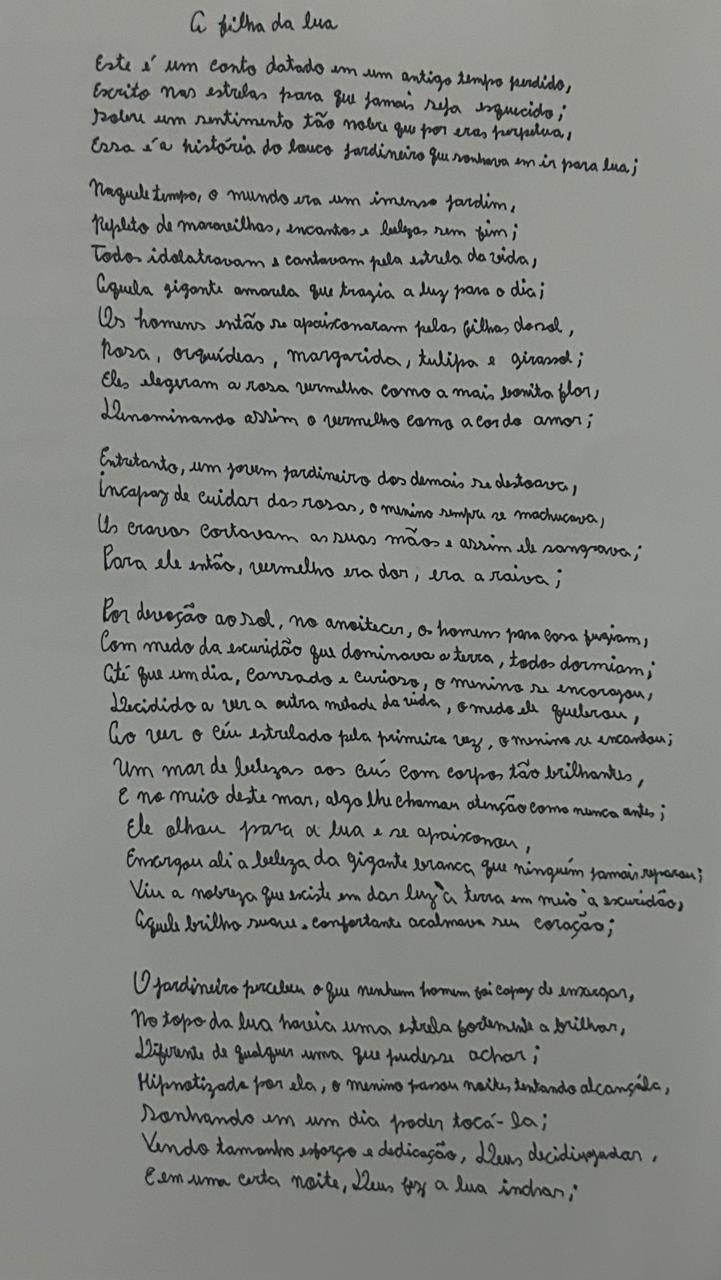 A filha da lua
Este é um conto datado em um antigo tempo perdido,
Escrito nas estrelas para que jamais seja esquecido;
Sobre um sentimento tão nobre que por eras perpetua,
Essa é a história do louco jardineiro que sonhava em ir para lua;
Naquele tempo, o mundo era um imenso jardim,
Repleto de maravilhas, encantos e belezas sem fim;
Todos idolatravam e cantavam pela estrela da vida,
Aquela gigante amarela que trazia a luz para o dia;
Os homens então se apaixonaram pelas filhas do sol,
Rosa, orquídeas, margarida, tulipa e girassol;
Eles elegeram a rosa vermelha como a mais bonita flor,
Denominando assim o vermelho como a cor do amor;
Entretanto, um jovem jardineiro dos demais se destoava,
Incapaz de cuidar das rosas, o menino sempre se machucava,
Os cravos cortavam as suas mãos e assim ele sangrava;
Para ele então, vermelho era dor, era a raiva;
Por devoção ao Sol, no anoitecer, os homens para casa fugiam,
Com medo da escuridão que dominava a terra, todos dormiam;
Até que um dia, cansado e curioso, o menino se encorajou,
Decidido a ver a outra metade da vida, o medo ele quebrou,
Ao ver o céu estrelado pela primeira vez, o menino se encantou;
Um mar de belezas aos céus com corpos tão brilhantes,
E no meio deste mar, algo lhe chamou atenção como nunca antes;
Ele olhou para a lua e se apaixonou,
Enxergou ali a beleza da gigante branca que ninguém jamais reparou;
Viu a nobreza que existe em dar luz à terra em meio à escuridão,
Aquele brilho suave e confortante acalmava seu coração;
O jardineiro percebeu o que nenhum homem foi capaz de enxergar,
No topo da lua havia uma estrela fortemente a brilhar,
Diferente de qualquer uma que pudesse achar;
Hipnotizado por ela, o menino passou noites tentando alcançála,
Sonhando em um dia poder tocá-la;
Vendo tamanho esforço e dedicação, Deus decidiu ajudar,
E em uma certa noite, Deus fez a lua inchar;